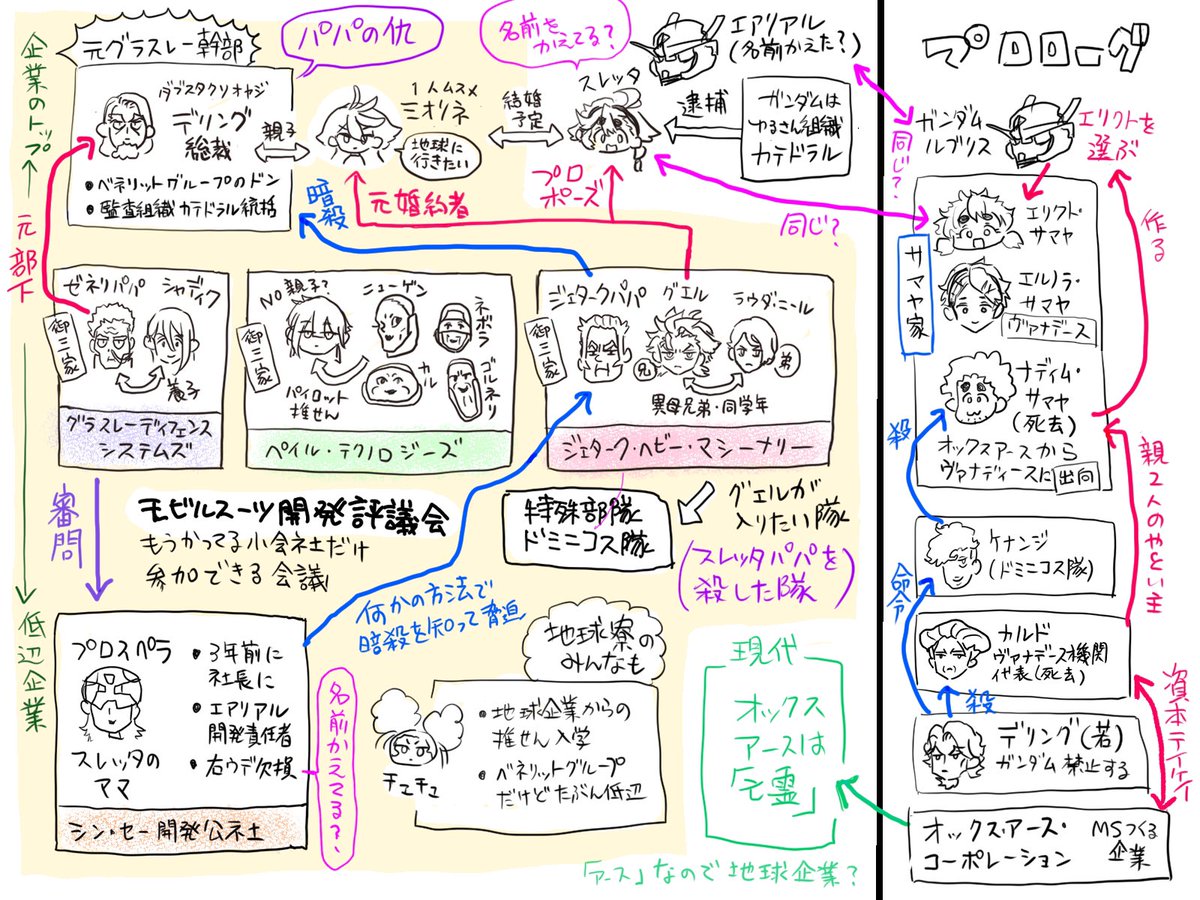 元グラスレー幹部
ダブスタクソオヤジ
デリング
総裁
・ベネリットグループのドン
・監査組織カテドラル統括
企業のトップ
元部下
低辺企業
パパの仇
親子
1人ムスメ
ミオリネ
地球に
行きたい
結婚
予定
名前を
かえてる?
スレッタ
エアリアル
(名前かえた?)
逮捕
ガンダムは
ゆるさん組織
カテドラル
暗殺
元婚約者
プロ
ポーズ
同じ?
ゼネリパパ
シャディク
御三家
養子
グラスレーディフェンス
システムズ
NO親子?
ニューゲン
ネボラ
カル
ゴルネリ
御三家
パイロット
推せん
ペイル・テクノロジーズ
ジェタークパパ
グエル
ラウダ・ニール
御三家
兄
弟
異母兄弟・同学年
ジェターク・ヘビー・マシーナリー
審問
モビルスーツ開発評議会
もうかってる小会社だけ
参加できる会議
特殊部隊
ドミニコス隊
グエルが
入りたい隊
(スレッタパパを
殺した隊)
何かの方法で
暗殺を知って脅迫
プロスペラ
スレッタの
ママ
・3年前に
社長に
・エアリアル
開発責任者
・右ウデ欠損
シン・セー開発公社
名前かえてる?
地球寮の
みんなも
チュチュ
・地球企業からの
推せん入学
・ベネリットグループ
だけどたぶん低辺
現代
オックス
アースは
「亡霊」
「アース」なので地球企業?
プロローグ
ガンダム
ルブリス
エリクトを
選ぶ
同じ?
作る
サマヤ家
エリクト・
サマヤ
エルノラ・
サマヤ
ヴァナデース
ナディム・
サマヤ
(死去)
オックスアースから
ヴァナディースに出向
殺
親2人のやとい主
ケナンジ
(ドミニコス隊)
命令
カルド
ヴァナデース機関
代表(死去)
殺
資本テイケイ
デリング(若)
ガンダム禁止する
オックス・アース・
コーポレーション
MSつくる
企業